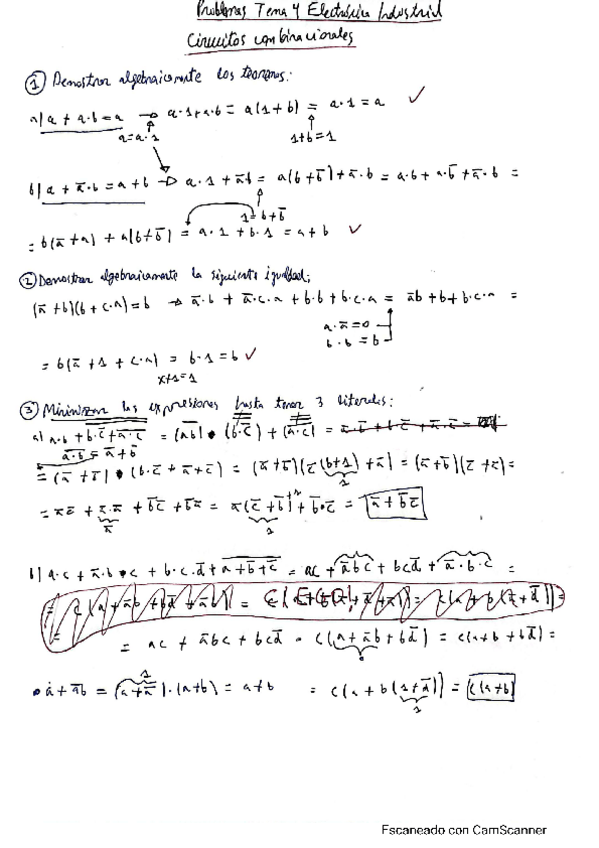 Problemas Tema 4 Electrónica Industrial
Circuitos combinacionales
① Demostrar algebraicamente los teoremas:
a) a + a·b = a → a·1 + a·b = a(1+b) = a·1 = a ✓
a=a·1 1+b=1
b) a + a̅·b = a+b → a·1 + a̅b = a(b+b̅) + a̅·b = a·b + a·b̅ + a̅·b =
1=b+b̅
= b(a̅+a) + a(b+b̅) = a·1 + b·1 = a+b ✓
② Demostrar algebraicamente la siguiente igualdad;
(a̅+b)(b+c·a)=b → a̅·b + a̅·c·a + b·b + b·c·a = a̅b + b + b·c·a =
a·a̅=0
b·b=b
= b(a̅+1+c·a) = b·1 = b ✓
x+1=1
③ Minimizar las expresiones hasta tener 3 literales:
a) a·b + b·c̅ + a̅·c̅ = (a̅b̅)·(b·c̅) + (a̅·c̅) =
a·b = a̅+b̅
= (a̅+b̅)·(b·c̅+a̅+c̅) = (a̅+b̅)(c̅(b+1)+a̅) = (a̅+b̅)(c̅+a̅) =
1
= a̅c̅ + a̅·a̅ + b̅c̅ + b̅a̅ = a̅(c̅+b̅+1) + b̅·c̅ = a̅+b̅c̅
a̅ 1
b) a·c + a̅·b·c + b·c·d̅ + a+b+c̅ = ac + a̅bc + bcd̅ + a̅·b·c =
= ac + a̅bc + bcd̅ = c(a+a̅b+bd̅) = c(a+b+bd̅) =
• a+a̅b = (a+a̅)·(a+b) = a+b = c(a+b(1+d̅)) = c(a+b)
1 1
Escaneado con CamScanner